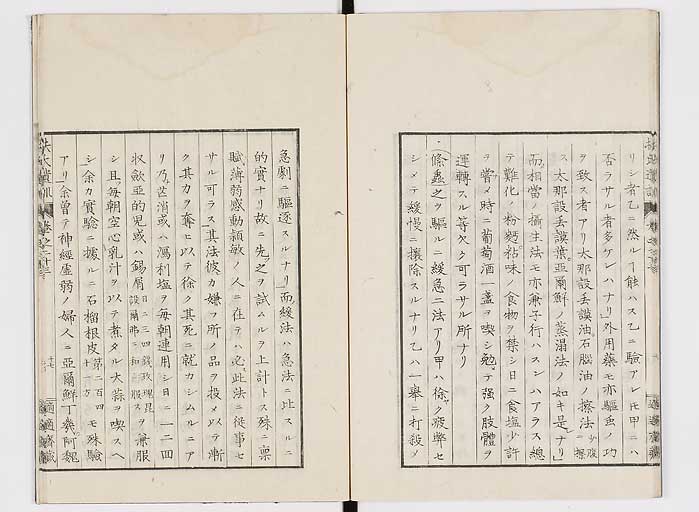 リシ者乙ニ然ルヿ能ハス乙ニ驗アレ𪜈甲ニハ
否ラサル者多ケレハナリ」外用藥モ亦驅虫ノ功
ヲ致ス者アリ太那設丢謨油石腦油ノ擦法少腹ニ擦
ス太那設丢謨葉亞爾鮮ノ蒸溻法ノ如キ是ナリ」
而相當ノ攝生法モ亦兼子行ハスンハアラス總
テ難化ノ粉麪粘味ノ食物ヲ禁シ日ニ食塩少許
ヲ嘗メ時ニ葡萄酒一盞ヲ喫シ勉テ强ク肢體ヲ
運轉スル等欠ク可ラサル所ナリ
條蟲之ヲ驅ルニ緩急二法アリ甲ハ徐ク疲弊セ
シメテ緩慢ニ攘除スルナリ乙ハ一擧ニ打殺メ
急劇ニ驅逐スルナリ」而緩法ハ急法ニ比スルニ
的實ナリ故ニ先之ヲ試ムルヲ上計トス殊ニ稟
賦薄弱感動頴敏ノ人ニ在テハ必此法ニ從事セ
サル可ラス」其法彼カ嫌フ所ノ品ヲ投メ以テ漸
ク其力ヲ奪ヒ以テ徐ク其死ニ就カシムルニア
リ乃芒消或ハ瀉利塩ヲ每朝連用シ日ニ一二四
収歛亞的児或ハ錫屑日ニ三四錢玫瑰昆設爾弗ニ和メ服スヲ兼服
シ且每朝空心乳汁ヲ以テ煮タル大蒜ヲ喫スヘ
シ余カ實驗ニ據ルニ石榴根皮第二百四十一方モ殊驗
アリ」余曾テ神經虚弱ノ婦人ニ亞爾鮮丁幾阿魏
扶氏遺訓
適適齋藏